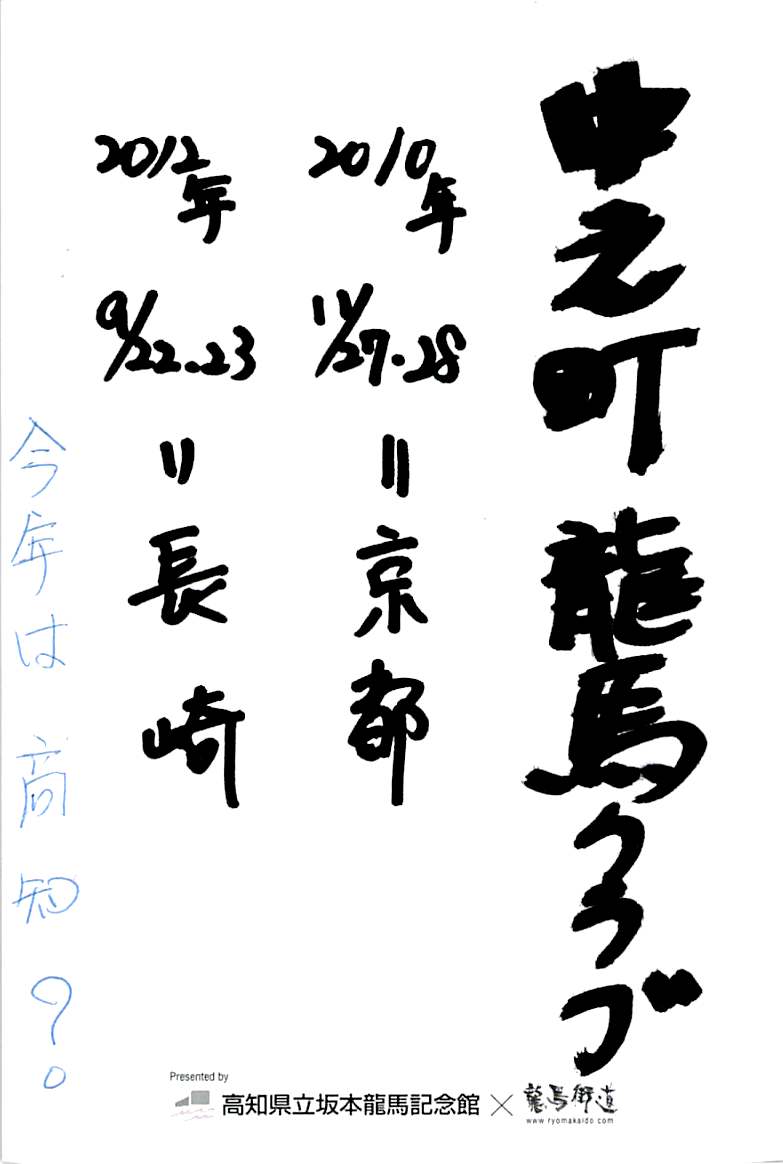 中之町龍馬クラブ
2010年 11/27・28=京都
2012年 9/22.23=長崎
今年は高知?。
Presented by
高知県立坂本龍馬記念館×龍馬街道
www.ryomakaido.com